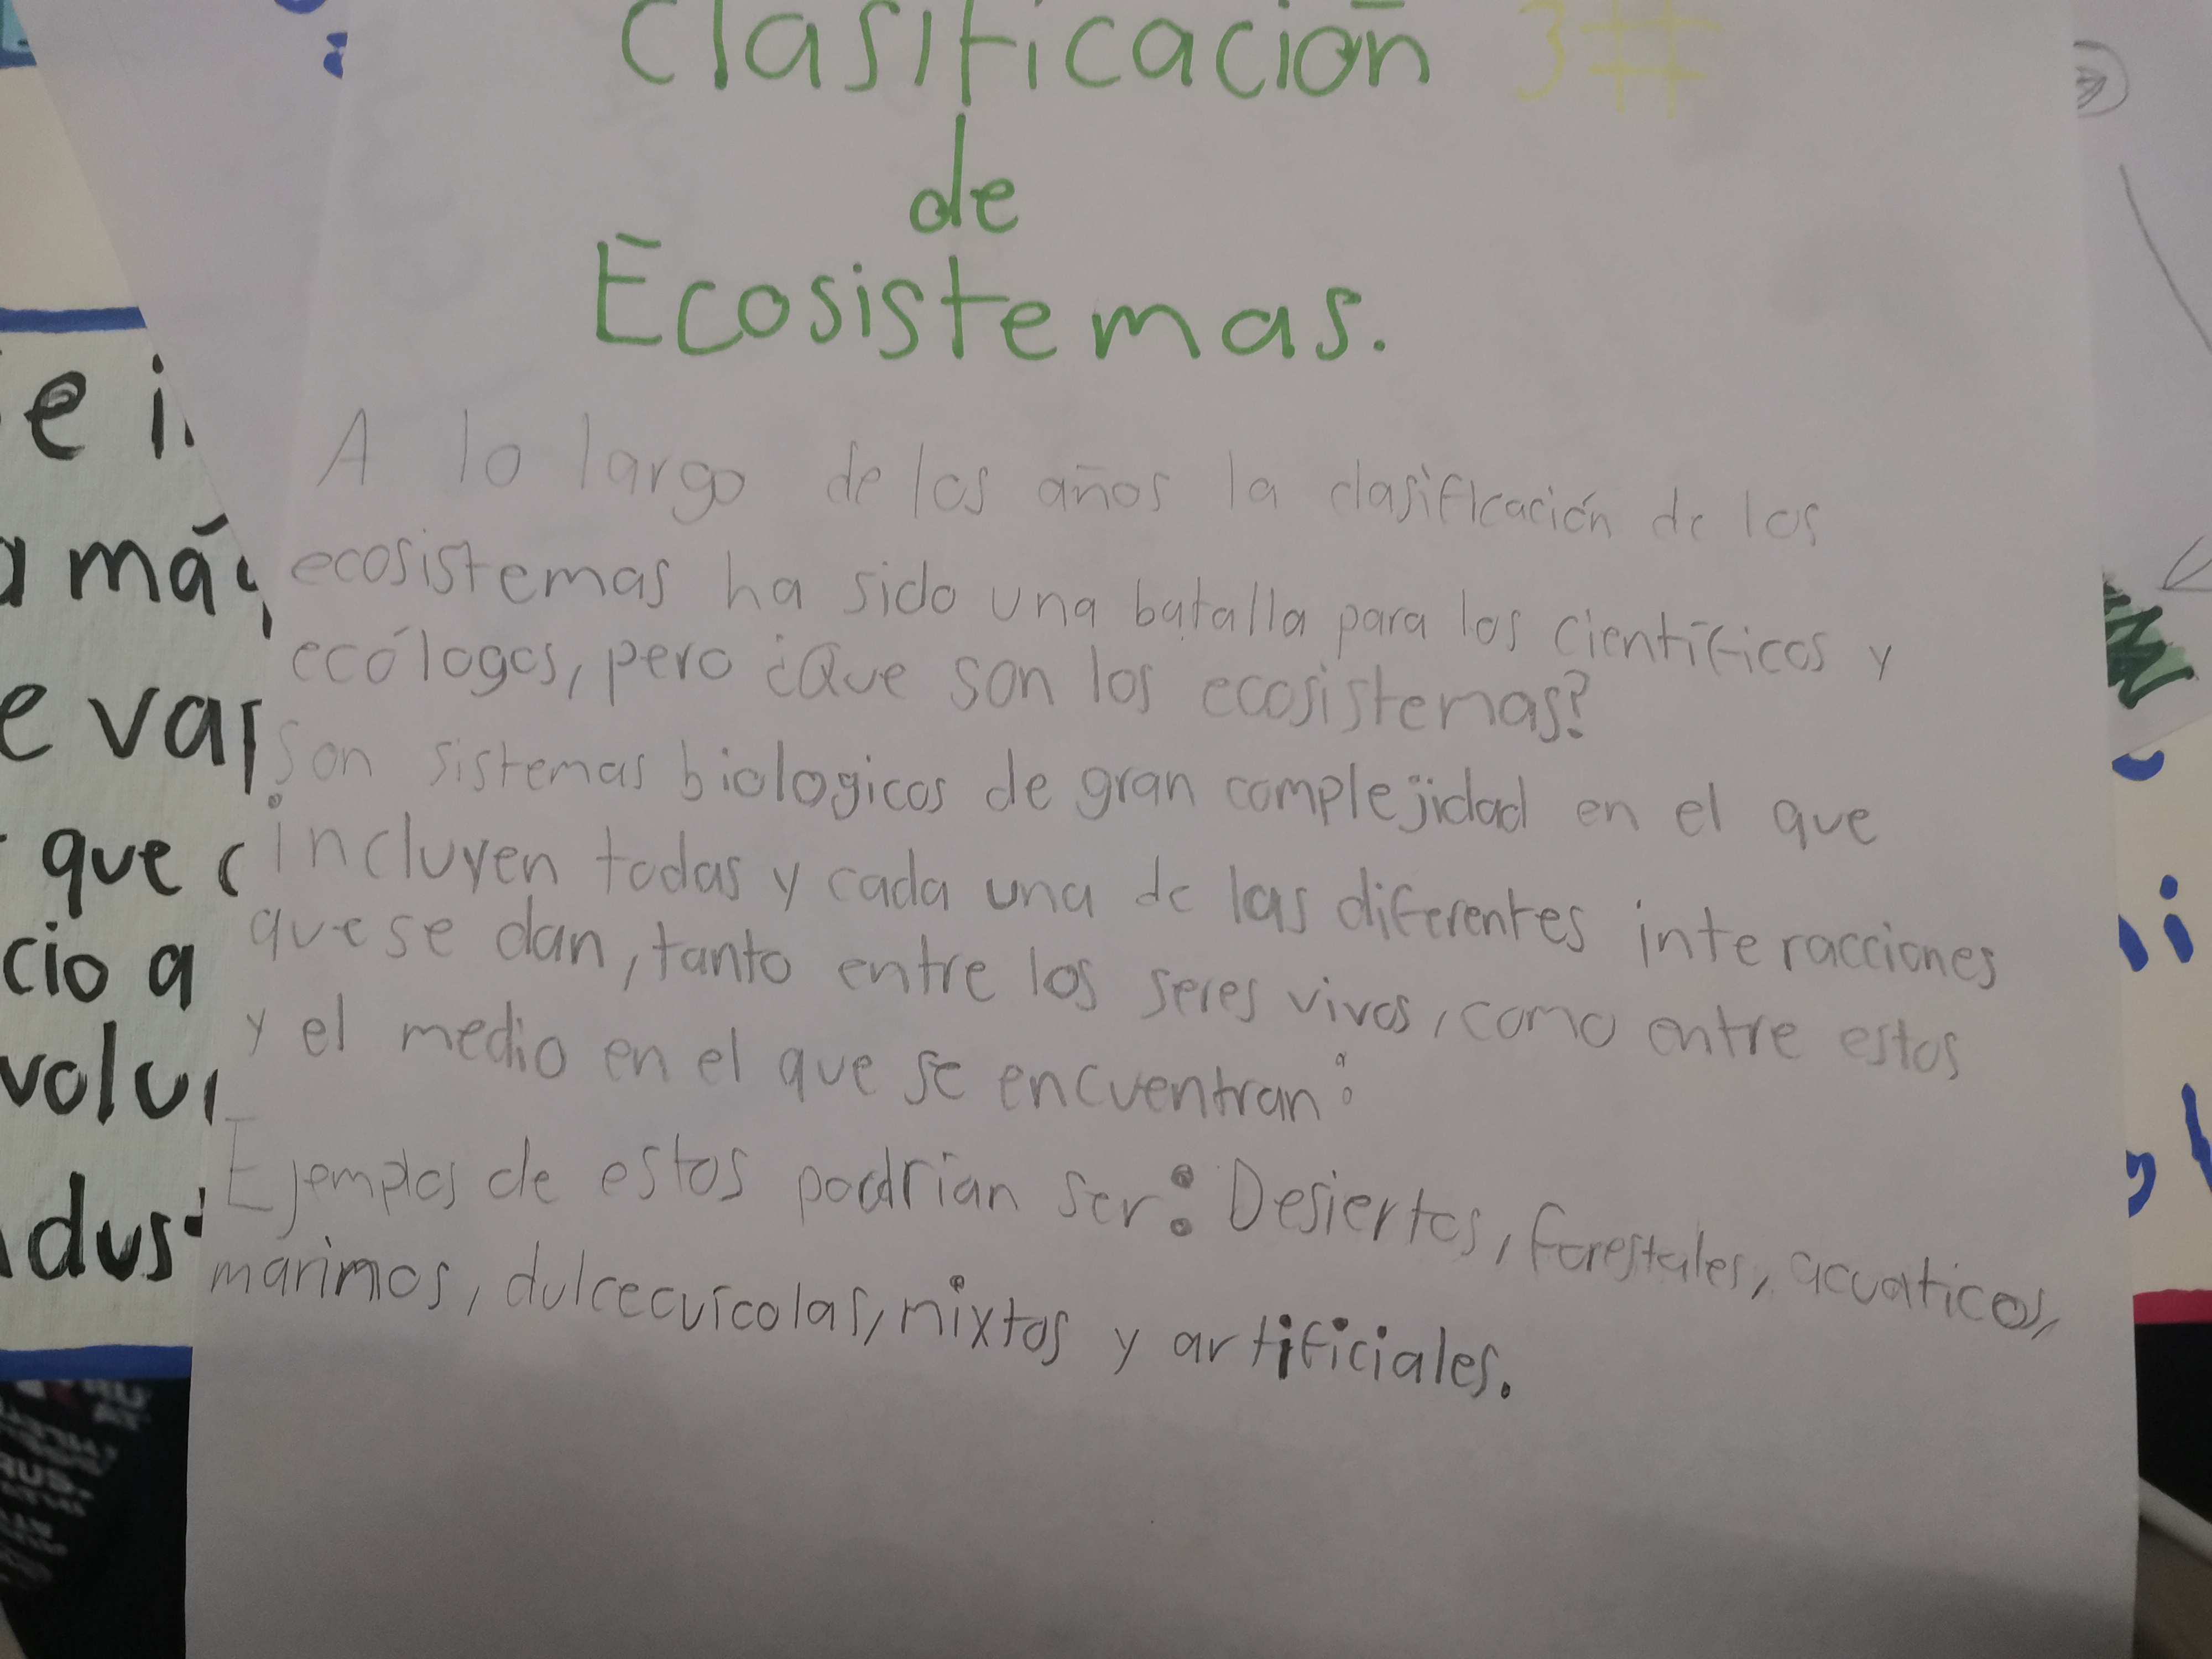 Clasificación 3#
de
Ecosistemas.
A lo largo de los años la clasificación de los
ecosistemas ha sido una batalla para los científicos y
ecólogos, pero ¿Que son los ecosistemas?
Son sistemas biologicos de gran complejidad en el que
incluyen todas y cada una de las diferentes interacciones
que se dan, tanto entre los seres vivos, como entre estos
y el medio en el que se encuentran:
Ejemplos de estos podrían ser: Desiertos, forestales, acuaticos,
marinos, dulcecuícolas, mixtos y artificiales.
e i
má
e var
que c
cio a
volu
dus